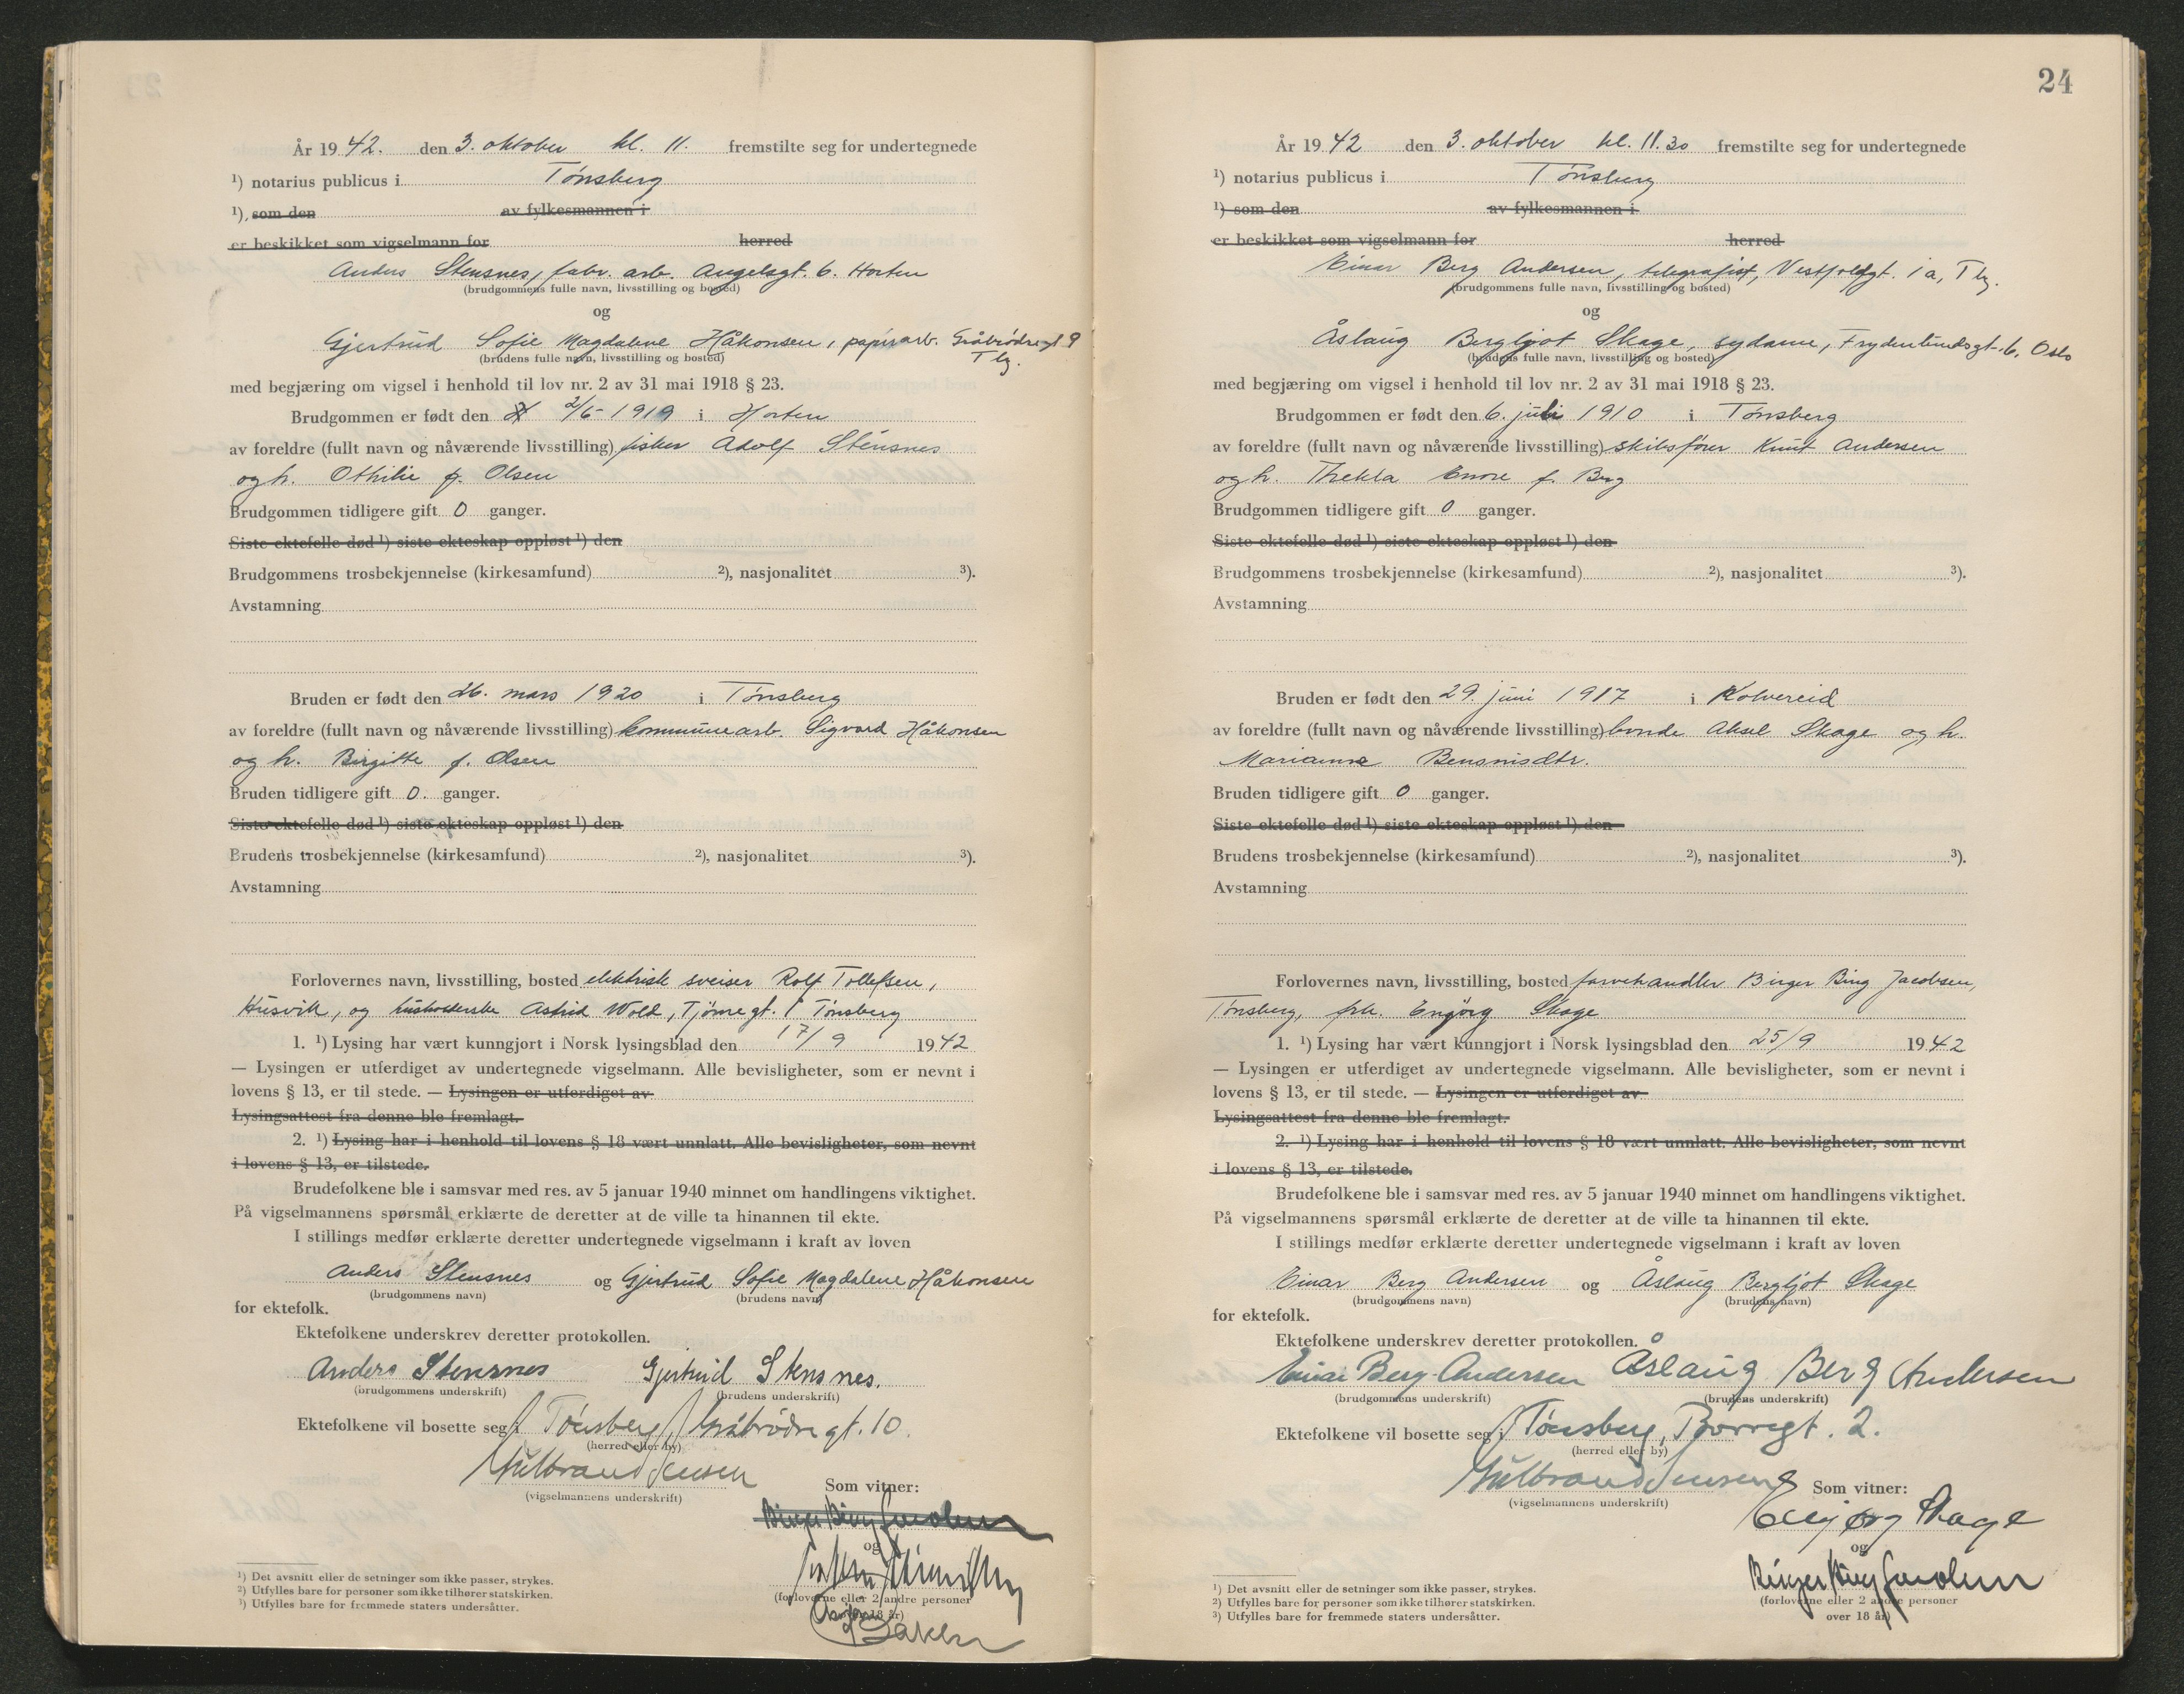 År 1942. den 3. oktober kl. 11. fremstilte seg for undertegnede
¹) notarius publicus i Tønsberg
¹), som den av fylkesmannen i
er beskikket som vigselmann for herred
Anders Stensnes, fabr. arb. Augelsgt. 6. Horten
(brudgommens fulle navn, livsstilling og bosted)
og
Gjertrud Sofie Magdalene Håkonsen, papirarb. Gråbrødregt 9
Tbg.
(brudens fulle navn, livsstilling og bosted)
med begjæring om vigsel i henhold til lov nr. 2 av 31 mai 1918 § 23.
Brudgommen er født den 2/6-1919 i Horten
av foreldre (fullt navn og nåværende livsstilling) fisker Adolf Stensnes
og h. Othilie f. Olsen
Brudgommen tidligere gift 0 ganger.
Siste ektefelle død ¹) siste ekteskap oppløst ¹) den
Brudgommens trosbekjennelse (kirkesamfund) ²), nasjonalitet ³).
Avstamning
Bruden er født den 26. mars 1920 i Tønsberg
av foreldre (fullt navn og nåværende livsstilling) kommunearb. Sigvard Håkonsen
og h. Birgitte f. Olsen
Bruden tidligere gift 0. ganger.
Siste ektefelle død ¹) siste ekteskap oppløst ¹) den
Brudens trosbekjennelse (kirkesamfund) ²), nasjonalitet ³).
Avstamning
Forlovernes navn, livsstilling, bosted elektrisk sveiser Rolf Tollefsen,
Husvik, og husholderske Astrid Wold, Tjømegt. 1 Tønsberg
1. ¹) Lysing har vært kunngjort i Norsk lysingsblad den 17/9 1942
— Lysingen er utferdiget av undertegnede vigselmann. Alle bevisligheter, som er nevnt i
lovens § 13, er til stede. — Lysingen er utferdiget av
Lysingsattest fra denne ble fremlagt.
2. ¹) Lysing har i henhold til lovens § 18 vært unnlatt. Alle bevisligheter, som nevnt
i lovens § 13, er tilstede.
Brudefolkene ble i samsvar med res. av 5 januar 1940 minnet om handlingens viktighet.
På vigselmannens spørsmål erklærte de deretter at de ville ta hinannen til ekte.
I stillings medfør erklærte deretter undertegnede vigselmann i kraft av loven
Anders Stensnes og Gjertrud Sofie Magdalene Håkonsen
(brudgommens navn) (brudens navn)
for ektefolk.
Ektefolkene underskrev deretter protokollen.
Anders Stensnes Gjertrud Stensnes.
(brudgommens underskrift) (brudens underskrift)
Ektefolkene vil bosette seg i Tønsberg, Gråbrødregt. 10.
(herred eller by)
Gulbrand Jensen
(vigselmannens underskrift)
Som vitner:
Birger Bing Jacobsen
og
(forloverne eller 2 andre personer
over 18 år)
¹) Det avsnitt eller de setninger som ikke passer, strykes.
²) Utfylles bare for personer som ikke tilhører statskirken.
³) Utfylles bare for fremmede staters undersåtter.
24
År 1942 den 3. oktober kl. 11.30 fremstilte seg for undertegnede
¹) notarius publicus i Tønsberg
¹) som den av fylkesmannen i
er beskikket som vigselmann for herred
Einar Berg Andersen, telegrafist, Vestfoldgt. 1a, Tbg.
(brudgommens fulle navn, livsstilling og bosted)
og
Åslaug Bergljot Skage, sydame, Frydenlundsgt. 6, Oslo
(brudens fulle navn, livsstilling og bosted)
med begjæring om vigsel i henhold til lov nr. 2 av 31 mai 1918 § 23.
Brudgommen er født den 6. juli 1910 i Tønsberg
av foreldre (fullt navn og nåværende livsstilling) skibsfører Knut Andersen
og h. Thekla Enore f. Berg
Brudgommen tidligere gift 0 ganger.
Siste ektefelle død ¹) siste ekteskap oppløst ¹) den
Brudgommens trosbekjennelse (kirkesamfund) ²), nasjonalitet ³).
Avstamning
Bruden er født den 29. juni 1917 i Kolvereid
av foreldre (fullt navn og nåværende livsstilling) bonde Aksel Skage og h.
Marianna Bensnisdtr.
Bruden tidligere gift 0 ganger.
Siste ektefelle død ¹) siste ekteskap oppløst ¹) den
Brudens trosbekjennelse (kirkesamfund) ²), nasjonalitet ³).
Avstamning
Forlovernes navn, livsstilling, bosted farvehandler Birger Bing Jacobsen,
Tønsberg, frk. Engjørg Skage
1. ¹) Lysing har vært kunngjort i Norsk lysingsblad den 25/9 1942
— Lysingen er utferdiget av undertegnede vigselmann. Alle bevisligheter, som er nevnt i
lovens § 13, er til stede. — Lysingen er utferdiget av
Lysingsattest fra denne ble fremlagt.
2. ¹) Lysing har i henhold til lovens § 18 vært unnlatt. Alle bevisligheter, som nevnt
i lovens § 13, er tilstede.
Brudefolkene ble i samsvar med res. av 5 januar 1940 minnet om handlingens viktighet.
På vigselmannens spørsmål erklærte de deretter at de ville ta hinannen til ekte.
I stillings medfør erklærte deretter undertegnede vigselmann i kraft av loven
Einar Berg Andersen og Åslaug Bergljot Skage
(brudgommens navn) (brudens navn)
for ektefolk.
Ektefolkene underskrev deretter protokollen.
Einar Berg-Andersen Åslaug Berg Andersen
(brudgommens underskrift) (brudens underskrift)
Ektefolkene vil bosette seg i Tønsberg, Borregt. 2.
(herred eller by)
Gulbrand Jensen
(vigselmannens underskrift)
Som vitner:
Skage
og
Birger Bing Jacobsen
(forloverne eller 2 andre personer
over 18 år)
¹) Det avsnitt eller de setninger som ikke passer, strykes.
²) Utfylles bare for personer som ikke tilhører statskirken.
³) Utfylles bare for fremmede staters undersåtter.